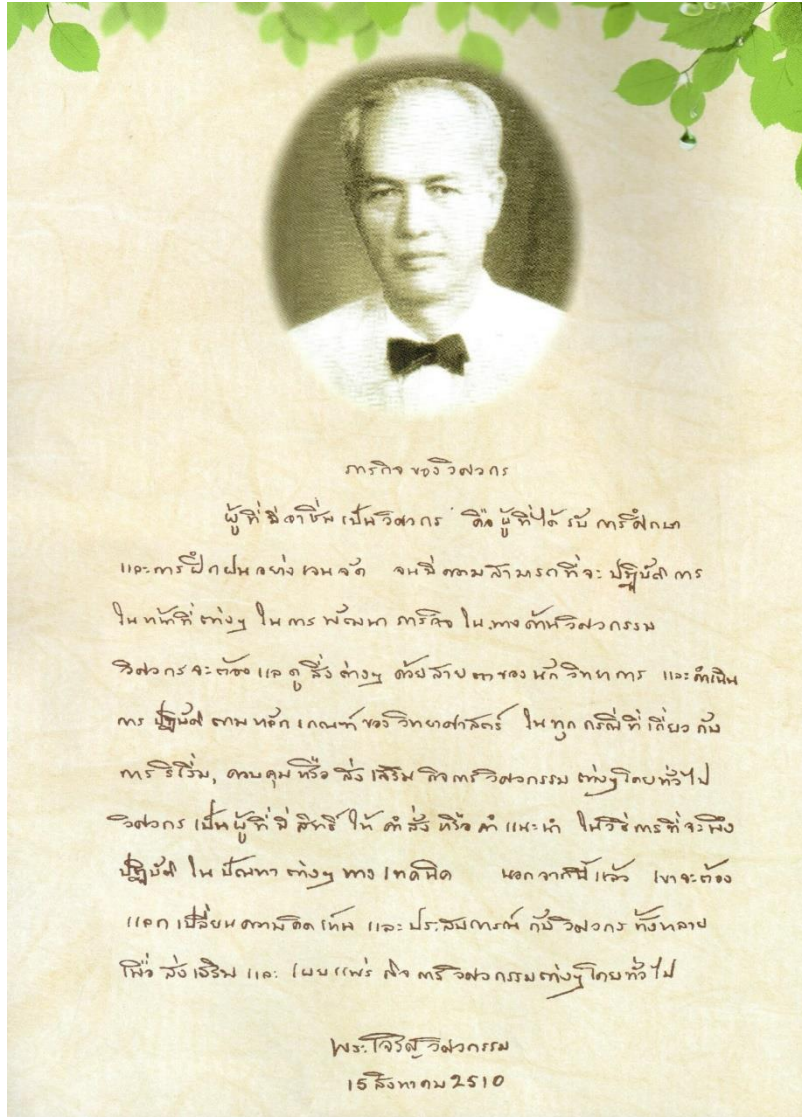 ภารกิจของวิศวกร
ผู้ที่มีอาชีพเป็นวิศวกร คือผู้ที่ได้รับการศึกษา
และการฝึกฝนอย่างเจนจัด จนมีความสามารถที่จะปฏิบัติการ
ในหน้าที่ต่างๆ ในการพัฒนาภารกิจในทางด้านวิศวกรรม
วิศวกรจะต้องแลดูสิ่งต่างๆ ด้วยสายตาของนักวิทยาการ และดำเนิน
การปฏิบัติตามหลักเกณฑ์ของวิทยาศาสตร์ ในทุกกรณีที่เกี่ยวกับ
การริเริ่ม, ควบคุมหรือส่งเสริมกิจการวิศวกรรมต่างๆโดยทั่วไป
วิศวกรเป็นผู้ที่มีสิทธิ์ให้คำสั่งหรือคำแนะนำ ในวิธีการที่จะพึง
ปฏิบัติ ในปัญหาต่างๆทางเทคนิค นอกจากนี้แล้ว เขาจะต้อง
แลกเปลี่ยนความคิดเห็น และประสบการณ์กับวิศวกรทั้งหลาย
เพื่อส่งเสริมและเผยแพร่กิจการวิศวกรรมต่างๆโดยทั่วไป
พระเจริญวิศวกรรม
15 สิงหาคม 2510